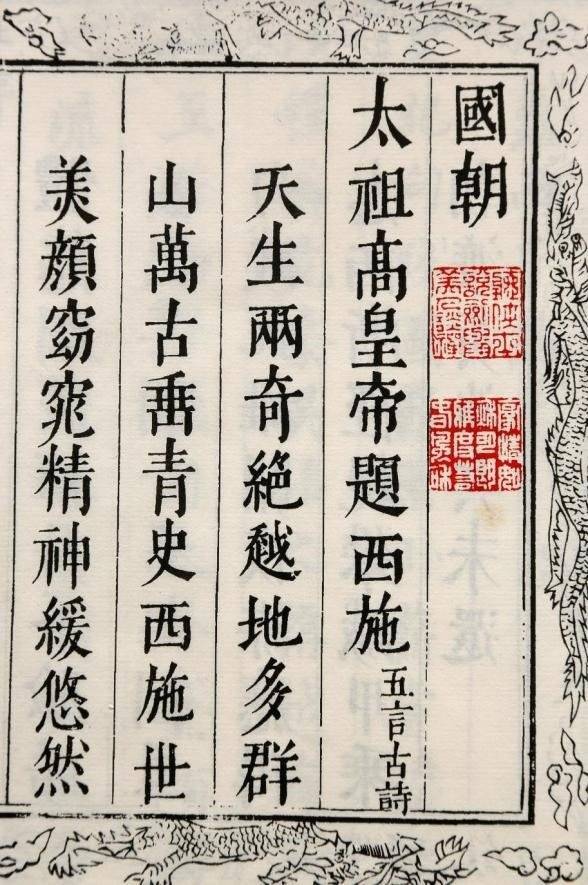 國朝
太祖高皇帝題西施五言古詩
天生兩奇絶越地多群
山萬古垂青史西施世
美顔窈窕精神緩悠然